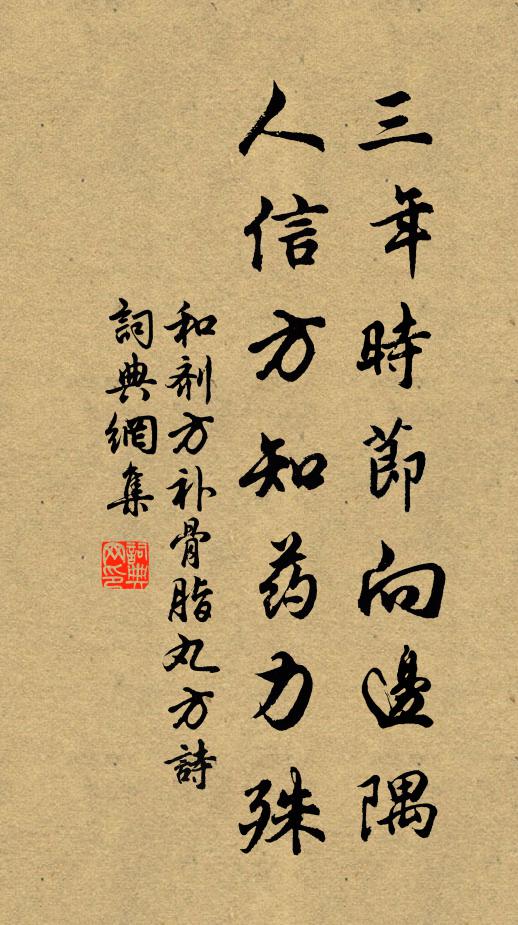 三年時節向邊隅
人信方知药力殊
和剂方补骨脂丸方詩
詞典網集
詞典
网印